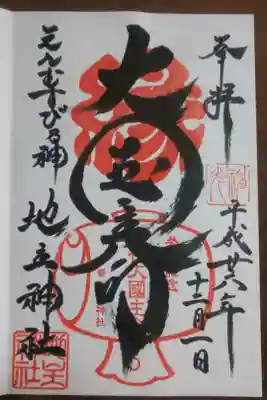 奉拝
平成廿六年
十二月一日
大国主命
大國主
神社
えんむすびの神
地主神社